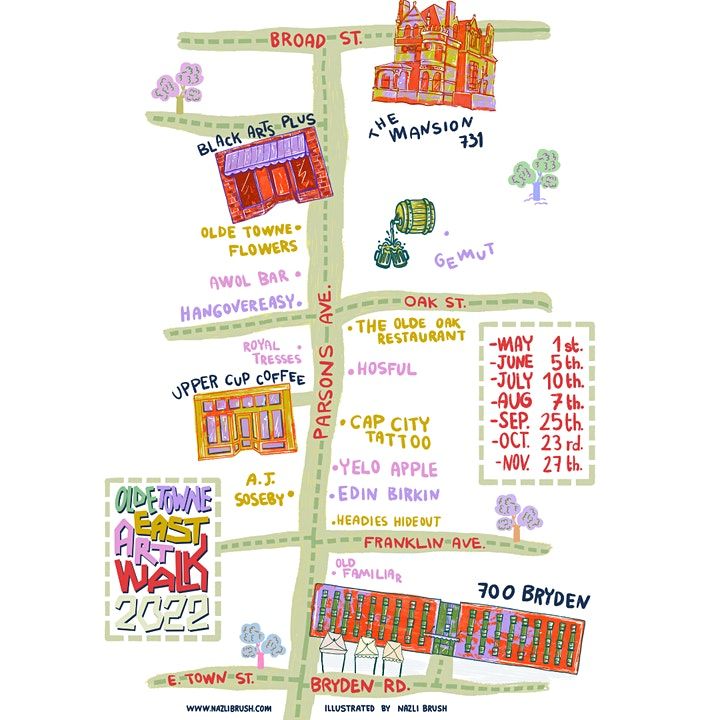 BROAD ST.
BLACK ARTS PLUS
THE
MANSION
731
OLDE TOWNE
FLOWERS
GEMUT
AWOL BAR
HANGOVEREASY
OAK ST.
PARSONS AVE.
THE OLDE OAK
RESTAURANT
ROYAL
TRESSES
HOSFUL
UPPER CUP COFFEE
-MAY 1st.
-JUNE 5th.
-JULY 10th.
-AUG 7th.
-SEP. 25th.
-OCT. 23rd.
-NOV. 27th.
CAP CITY
TATTOO
YELO APPLE
A.J.
SOSEBY
EDIN BIRKIN
HEADIES HIDEOUT
OLDE TOWNE
EAST
ART
WALK
2022
FRANKLIN AVE.
OLD
FAMILIAR
700 BRYDEN
E. TOWN ST.
BRYDEN RD.
WWW.NAZLIBRUSH.COM
ILLUSTRATED BY NAZLI BRUSH